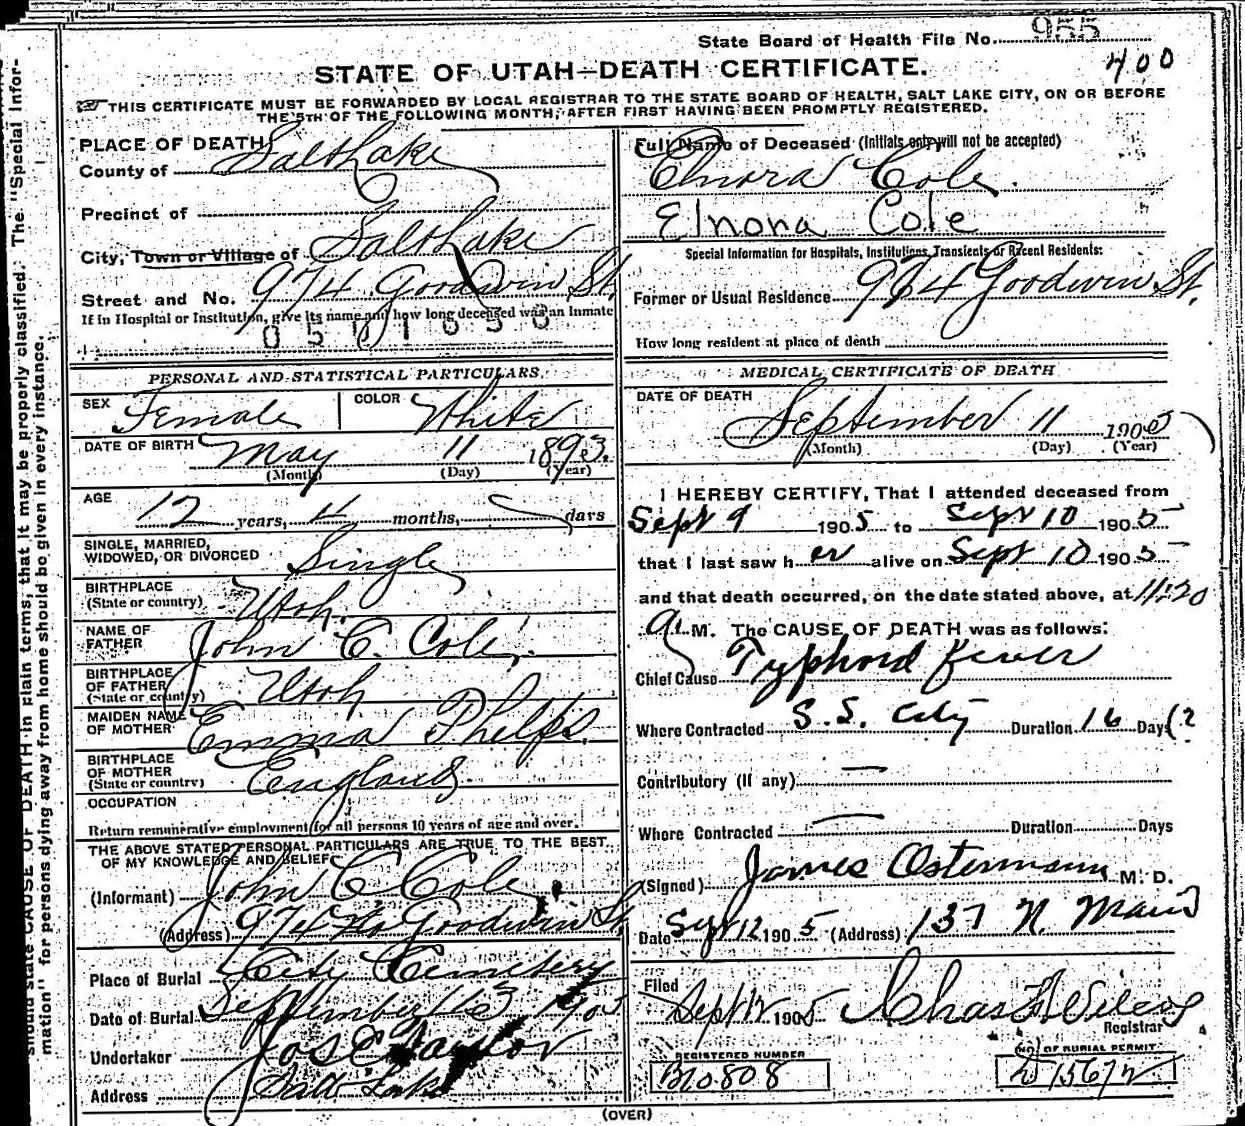 State Board of Health File No. 955
400
STATE OF UTAH—DEATH CERTIFICATE.
THIS CERTIFICATE MUST BE FORWARDED BY LOCAL REGISTRAR TO THE STATE BOARD OF HEALTH, SALT LAKE CITY, ON OR BEFORE
THE 5TH OF THE FOLLOWING MONTH, AFTER FIRST HAVING BEEN PROMPTLY REGISTERED.
PLACE OF DEATH
County of Salt Lake
Precinct of
City, Town or Village of Salt Lake
Street and No. 974 Goodwin St.
If in Hospital or Institution, give its name and how long deceased was an Inmate
0501050
Full Name of Deceased (Initials only will not be accepted)
Elnora Cole.
Elnona Cole
Special Information for Hospitals, Institutions, Transients or Recent Residents:
Former or Usual Residence 974 Goodwin St.
How long resident at place of death
PERSONAL AND STATISTICAL PARTICULARS.
SEX Female COLOR White
DATE OF BIRTH May 11 1893.
(Month) (Day) (Year)
AGE 12 years, 4 months, days
SINGLE, MARRIED,
WIDOWED, OR DIVORCED Single
BIRTHPLACE
(State or country) Utah.
NAME OF
FATHER John C. Cole.
BIRTHPLACE
OF FATHER
(State or country) Utah
MAIDEN NAME
OF MOTHER Emma Phelps.
BIRTHPLACE
OF MOTHER
(State or country) England.
OCCUPATION
Return remunerative employment for all persons 10 years of age and over.
THE ABOVE STATED PERSONAL PARTICULARS ARE TRUE TO THE BEST
OF MY KNOWLEDGE AND BELIEF
(Informant) John C Cole
(Address) 974 No Goodwin St.
Place of Burial City Cemetery
Date of Burial September 13 1905
Undertaker Jos E Taylor
Address Salt Lake
MEDICAL CERTIFICATE OF DEATH
DATE OF DEATH
September 11 1905
(Month) (Day) (Year)
I HEREBY CERTIFY, That I attended deceased from
Sept 9 1905 to Sept 10 1905
that I last saw her alive on Sept 10 1905
and that death occurred, on the date stated above, at 11:20
a. M. The CAUSE OF DEATH was as follows:
Chief Cause Typhoid Fever
Where Contracted S. S. City Duration 16 Days (?
Contributory (If any) —
Where Contracted — Duration Days
(Signed) James Ostermann M. D.
Date Sept 12 1905 (Address) 137 N. Main
Filed
Sept 12 1905 Chas
Registrar
REGISTERED NUMBER
B10808
NO. OF BURIAL PERMIT
D 15672
(OVER)
should state CAUSE OF DEATH in plain terms, that it may be properly classified. The "Special Infor-
mation" for persons dying away from home should be given in every instance.